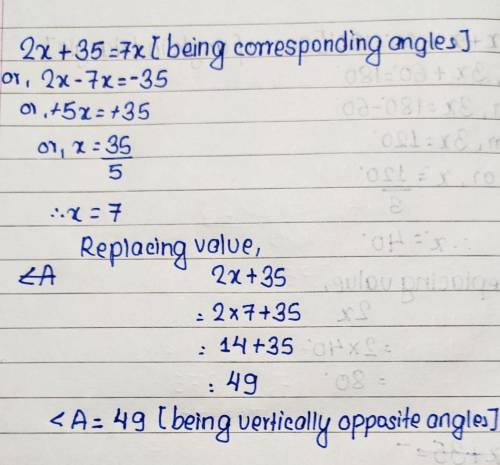 2x+35=7x [being corresponding angles]
or, 2x-7x=-35
or, +5x=+35
or, x = 35/5
∴x = 7
Replacing value,
∠A 2x+35
= 2×7+35
= 14+35
= 49
∠A = 49 [being vertically opposite angles]